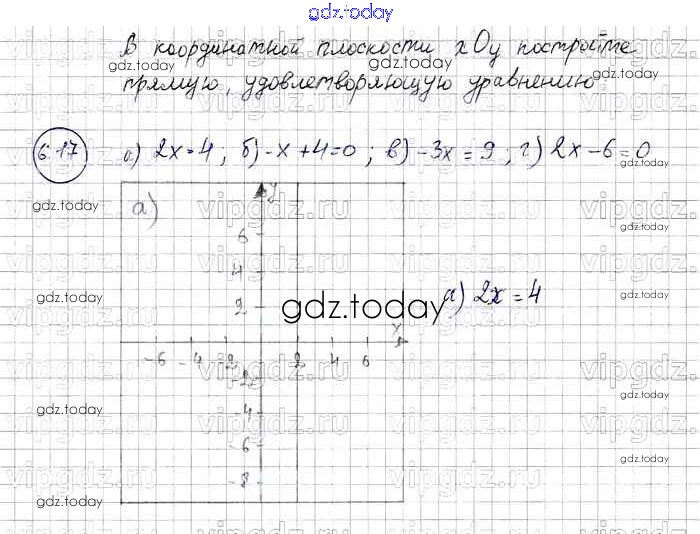 gdz.today
В координатной плоскости xOy постройте
прямую, удовлетворяющую уравнению
6.17 а) 2x=4; б) -x+4=0; в) -3x=9; г) 2x-6=0
gdz.today
gdz.today
gdz.today
gdz.today
а)
y
6
4
2
-6 -4 -2 2 4 6 x
-2
-4
-6
-8
а) 2x=4
gdz.today
gdz.today
gdz.today
gdz.today
gdz.today
gdz.today
gdz.today
gdz.today
vipgdz.ru
vipgdz.ru
vipgdz.ru
vipgdz.ru